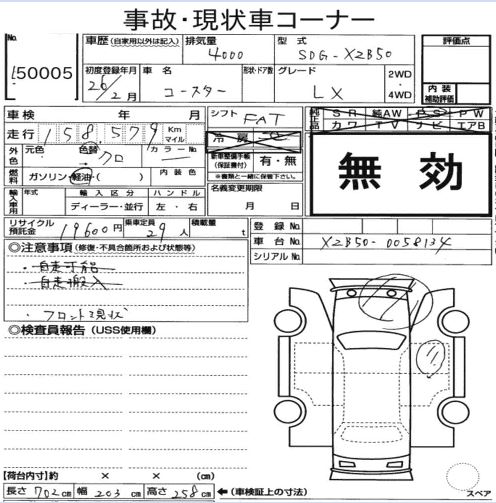 事故・現状車コーナー
No. 50005
車歴 (自家用以外は記入)
排気量 4000
型式 SDG-XZB50
評価点
初度登録年月 26/2月
車名 コースター
形状・ドア数
グレード LX
2WD・4WD
内装補助評価
車検 年 月
シフト FAT
純正品 SR 純AW PS PW
カワ TV ナビ エアB
走行 158,579 Km マイル
冷房
無効
外色 元色 色替 クロ カラーNo.
新車整備手帳(保証書付) 有・無
※書類と一緒に保管下さい。
燃料 ガソリン・軽油・( ) 内装色
名義変更期限
月 日
輸入車用 年式 輸入区分 ハンドル
ディーラー・並行 左・右
リサイクル預託金 19600円
乗車定員 29人
積載量 t
登録No.
車台No. XZB50-0058134
シリアルNo.
◎注意事項 (修復・不具合箇所および状態等)
・自走可能
・自走搬入
・フロント現状
◎検査員報告 (USS使用欄)
【荷台内寸】約 × × (cm)
長さ 702cm 幅 203cm 高さ 258cm ←(車検証上の寸法)
スペア